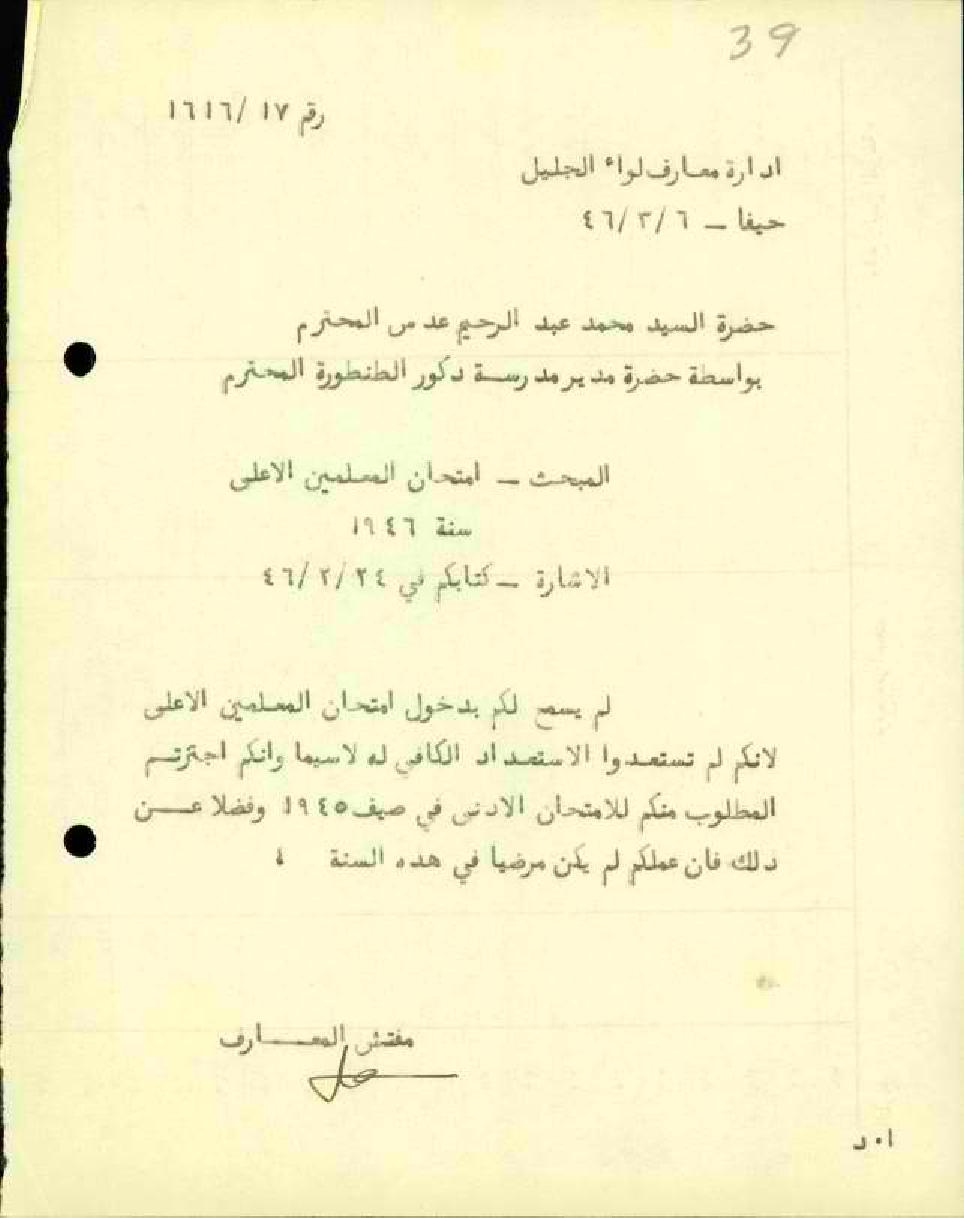 39
رقم ١٧ /١٦١٦
ادارة معارف لواء الجليل
حيفا — ٤٦/٣/٦
حضرة السيد محمد عبد الرحيم عدس المحترم
بواسطة حضرة مدير مدرسة ذكور الطنطورة المحترم
المبحث — امتحان المعلمين الاعلى
سنة ١٩٤٦
الاشارة — كتابكم في ٤٦/٢/٢٤
لم يسمح لكم بدخول امتحان المعلمين الاعلى
لانكم لم تستعدوا الاستعداد الكافي له لاسيما وانكم اجتزتم
المطلوب منكم للامتحان الادنى في صيف ١٩٤٥ وفضلا عن
ذلك فان عملكم لم يكن مرضيا في هذه السنة ؛
مفتش المعارف
ا٠د